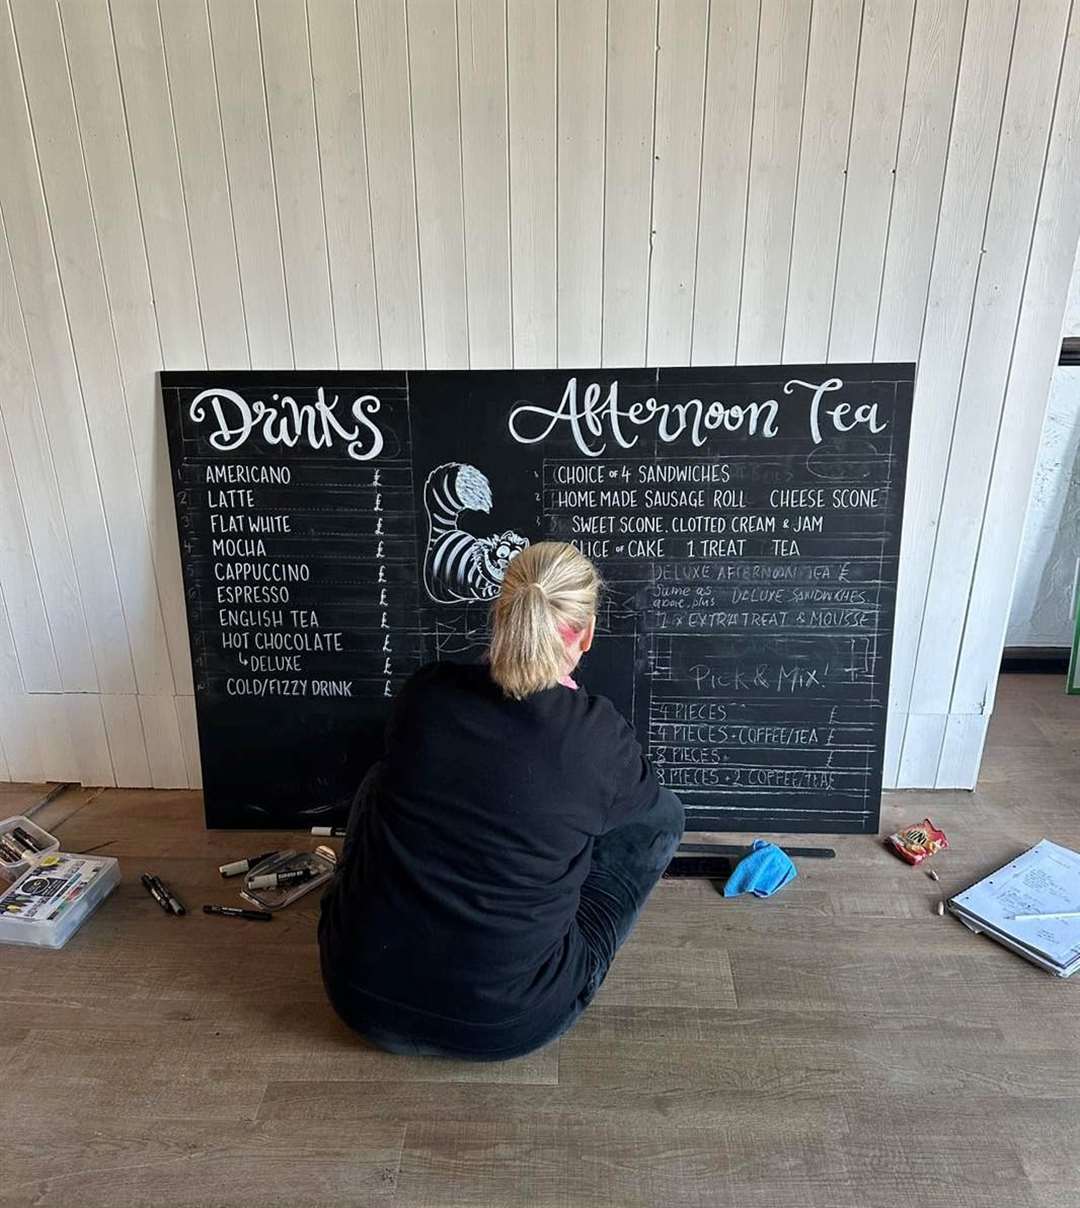 Drinks
AMERICANO £
LATTE £
FLAT WHITE £
MOCHA £
CAPPUCCINO £
ESPRESSO £
ENGLISH TEA £
HOT CHOCOLATE £
↳DELUXE £
COLD/FIZZY DRINK £
Afternoon Tea
CHOICE OF 4 SANDWICHES
HOMEMADE SAUSAGE ROLL CHEESE SCONE
SWEET SCONE. CLOTTED CREAM & JAM
SLICE OF CAKE 1 TREAT TEA
DELUXE AFTERNOON TEA £
Same as
above, plus DELUXE SANDWICHES
1 x EXTRA TREAT & MOUSSE
PICK & MIX!
4 PIECES £
4 PIECES + COFFEE/TEA £
8 PIECES £
8 PIECES + 2 COFFEE/TEA £